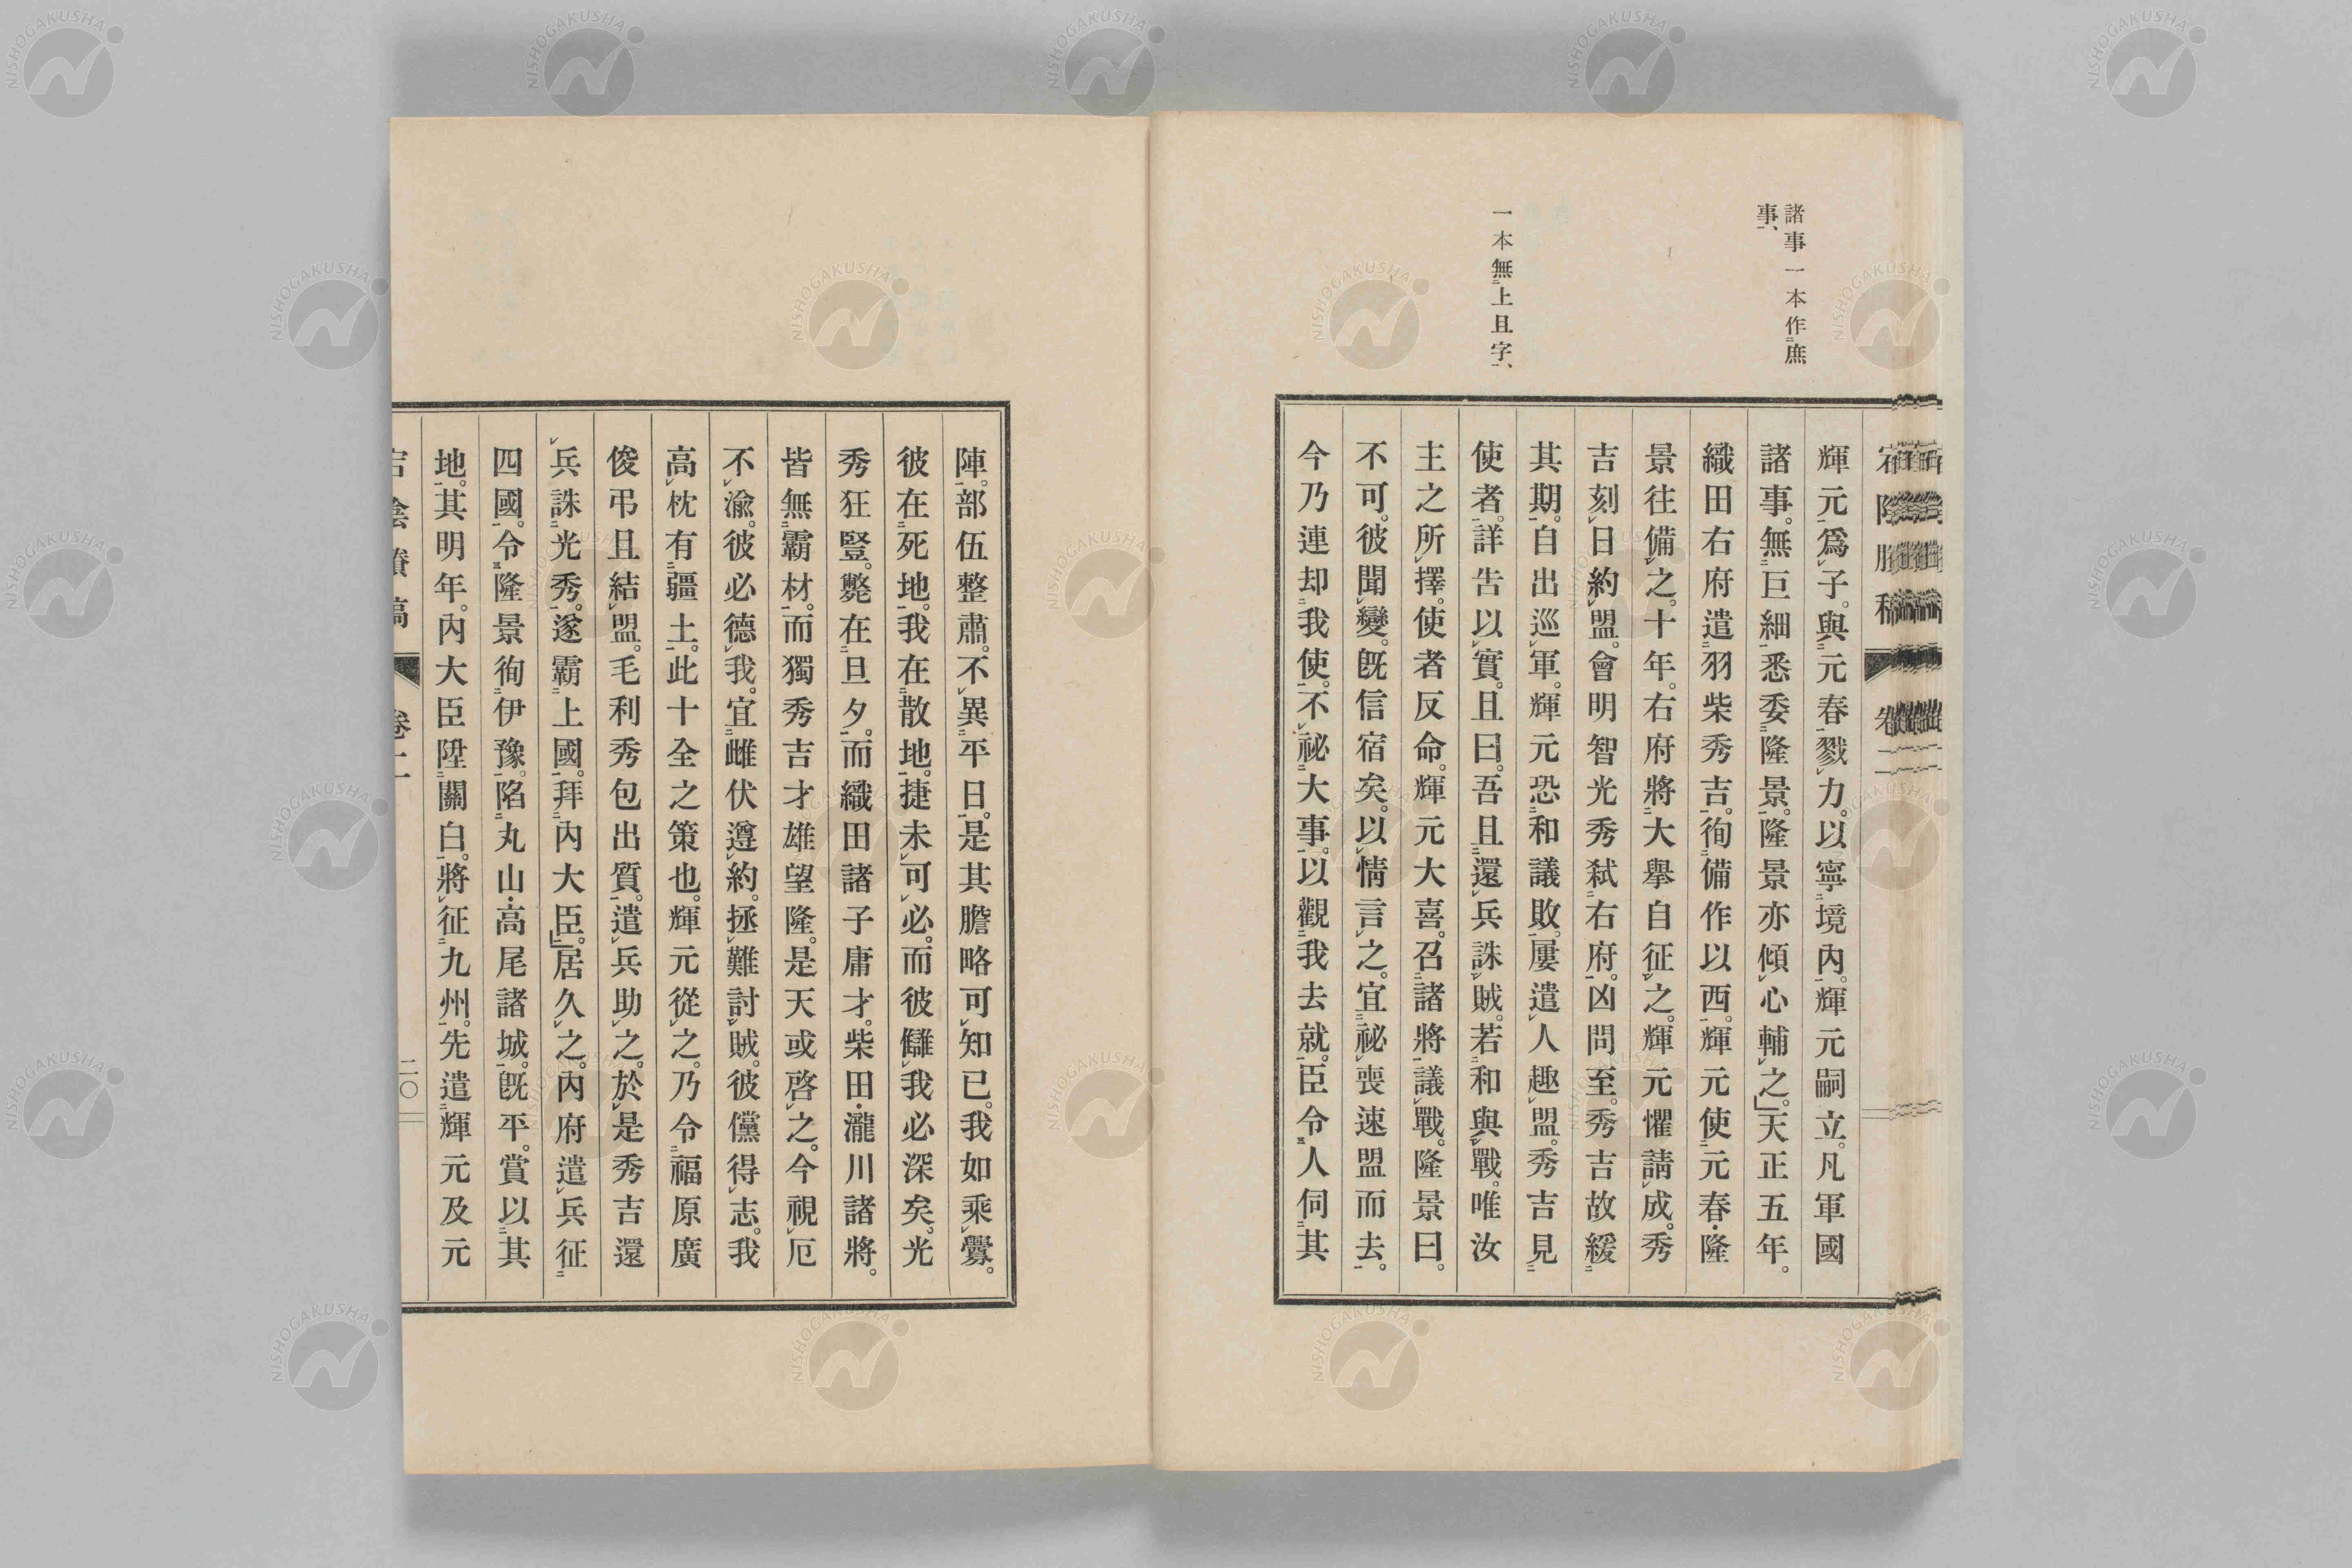 諸事一本作㆓庶
事㆒、
一本無㆓上且字㆒、
輝元㆒爲㆑子。與㆓元春㆒戮㆑力。以寧㆓境內㆒。輝元嗣立。凡軍國
諸事。無㆓巨細㆒悉委㆓隆景㆒。隆景亦傾㆑心輔㆑之。」天正五年。
織田右府遣㆓羽柴秀吉㆒。徇㆓備作以西㆒。輝元使㆓元春・隆
景往備㆒㆑之。十年。右府將㆓大擧自征㆒㆑之。輝元懼請㆑成。秀
吉刻㆑日約㆑盟。會明智光秀弑㆓右府㆒。凶問至。秀吉故緩㆓
其期㆒。自出巡㆑軍。輝元恐㆓和議敗㆒。屢遣㆑人趣㆑盟。秀吉見㆓
使者㆒。詳吿以㆑實。且曰。吾且㆓還㆑兵誅㆒㆑賊。若㆓和與㆒㆑戰。唯汝
主之所㆑擇。使者反命。輝元大喜。召㆓諸將㆒議㆑戰。隆景曰。
不可。彼聞㆑變。旣信宿矣。以㆑情言㆑之。宜㆓祕㆑喪速盟而去㆒。
今乃連却㆓我使㆒。不㆑祕㆓大事㆒。以觀㆓我去就㆒。臣令㆔人伺㆓其
陣㆒。部伍整肅。不㆑異㆓平日㆒。是其膽略可㆑知已。我如乘㆑釁。
彼在㆓死地㆒。我在㆓散地㆒。捷未㆑可㆑必。而彼讎㆑我必深矣。光
秀狂豎。斃在㆓旦夕㆒。而織田諸子庸才。柴田・瀧川諸將。
皆無㆓霸材㆒。而獨秀吉才雄望隆。是天或啓㆑之。今視㆑厄
不㆑渝。彼必德㆑我。宜㆓雌伏遵㆒㆑約。拯㆑難討㆑賊。彼儻得㆑志。我
高㆑枕有㆓疆土㆒。此十全之策也。輝元從㆑之。乃令㆓福原廣
俊弔且結㆒㆑盟。毛利秀包出質㆒。遣㆑兵助㆑之。於㆑是秀吉還
㆑兵誅㆓光秀㆒。遂霸㆓上國㆒。拜㆓內大臣㆒。」居久㆑之。內府遣㆑兵征㆓
四國㆒。令㆔隆景徇㆓伊豫㆒。陷㆓丸山・高尾諸城㆒。旣平。賞以㆓其
地㆒。其明年。內大臣陞㆓關白㆒。將㆑征㆓九州㆒。先遣㆓輝元及元
卷二
二〇